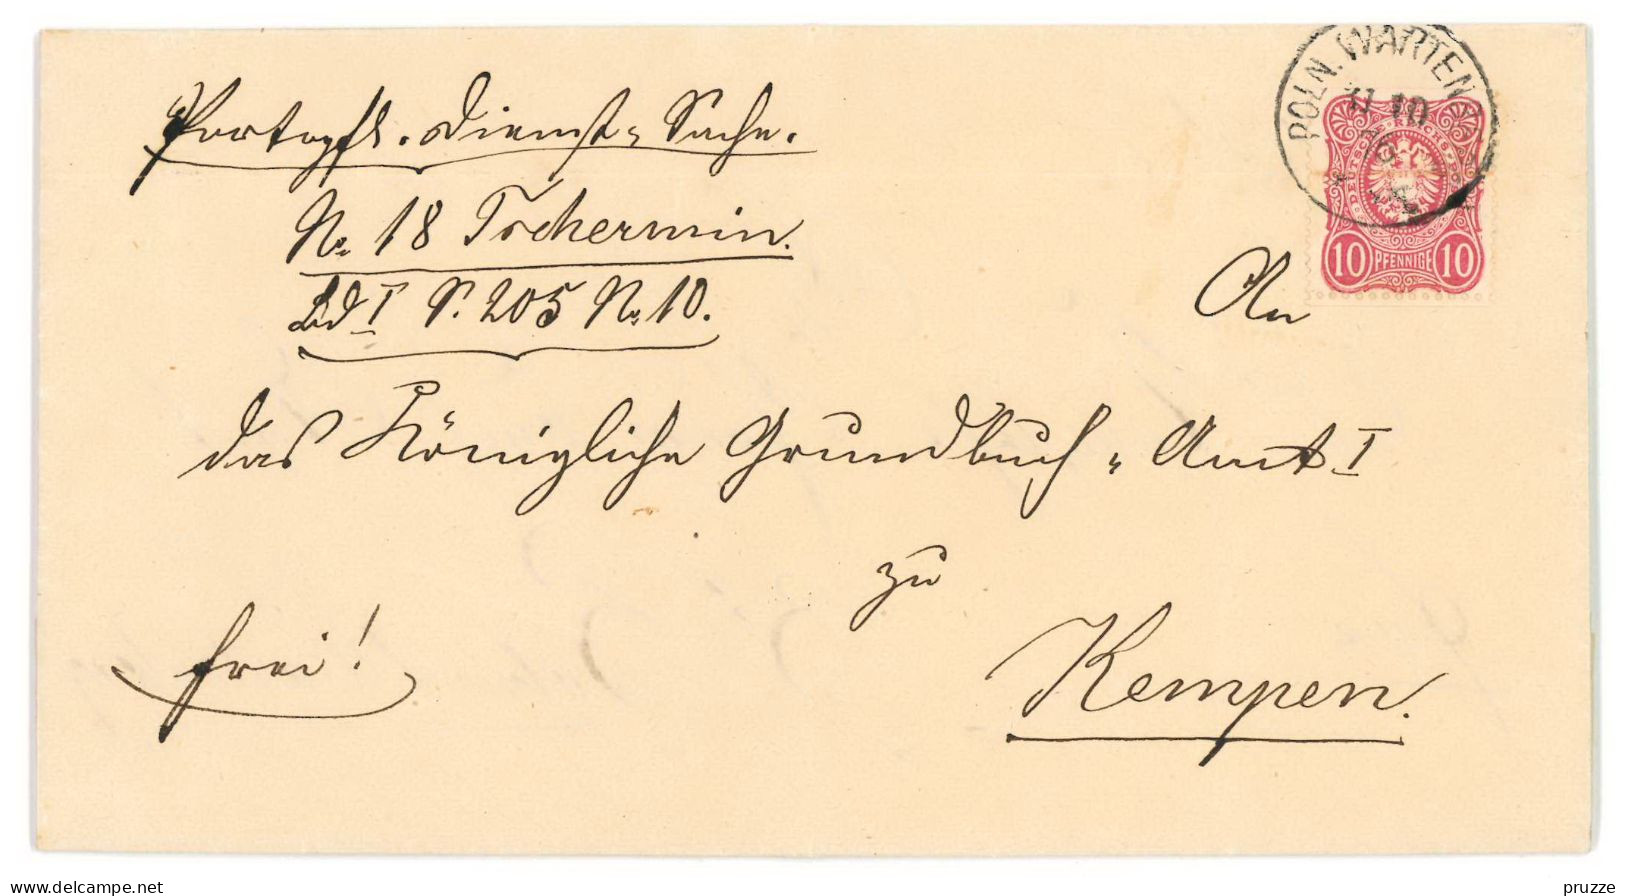 Portopfl. Dienst-Sache.
No 18 Tschermin.
Bd I S. 205 No 10.
POLN. WARTEN
11 10
DEUTSCHE REICHS-POST
10 PFENNIGE 10
An
das Königliche Grundbuch-Amt I
zu
Kempen.
frei!
www.delcampe.net
pruzze